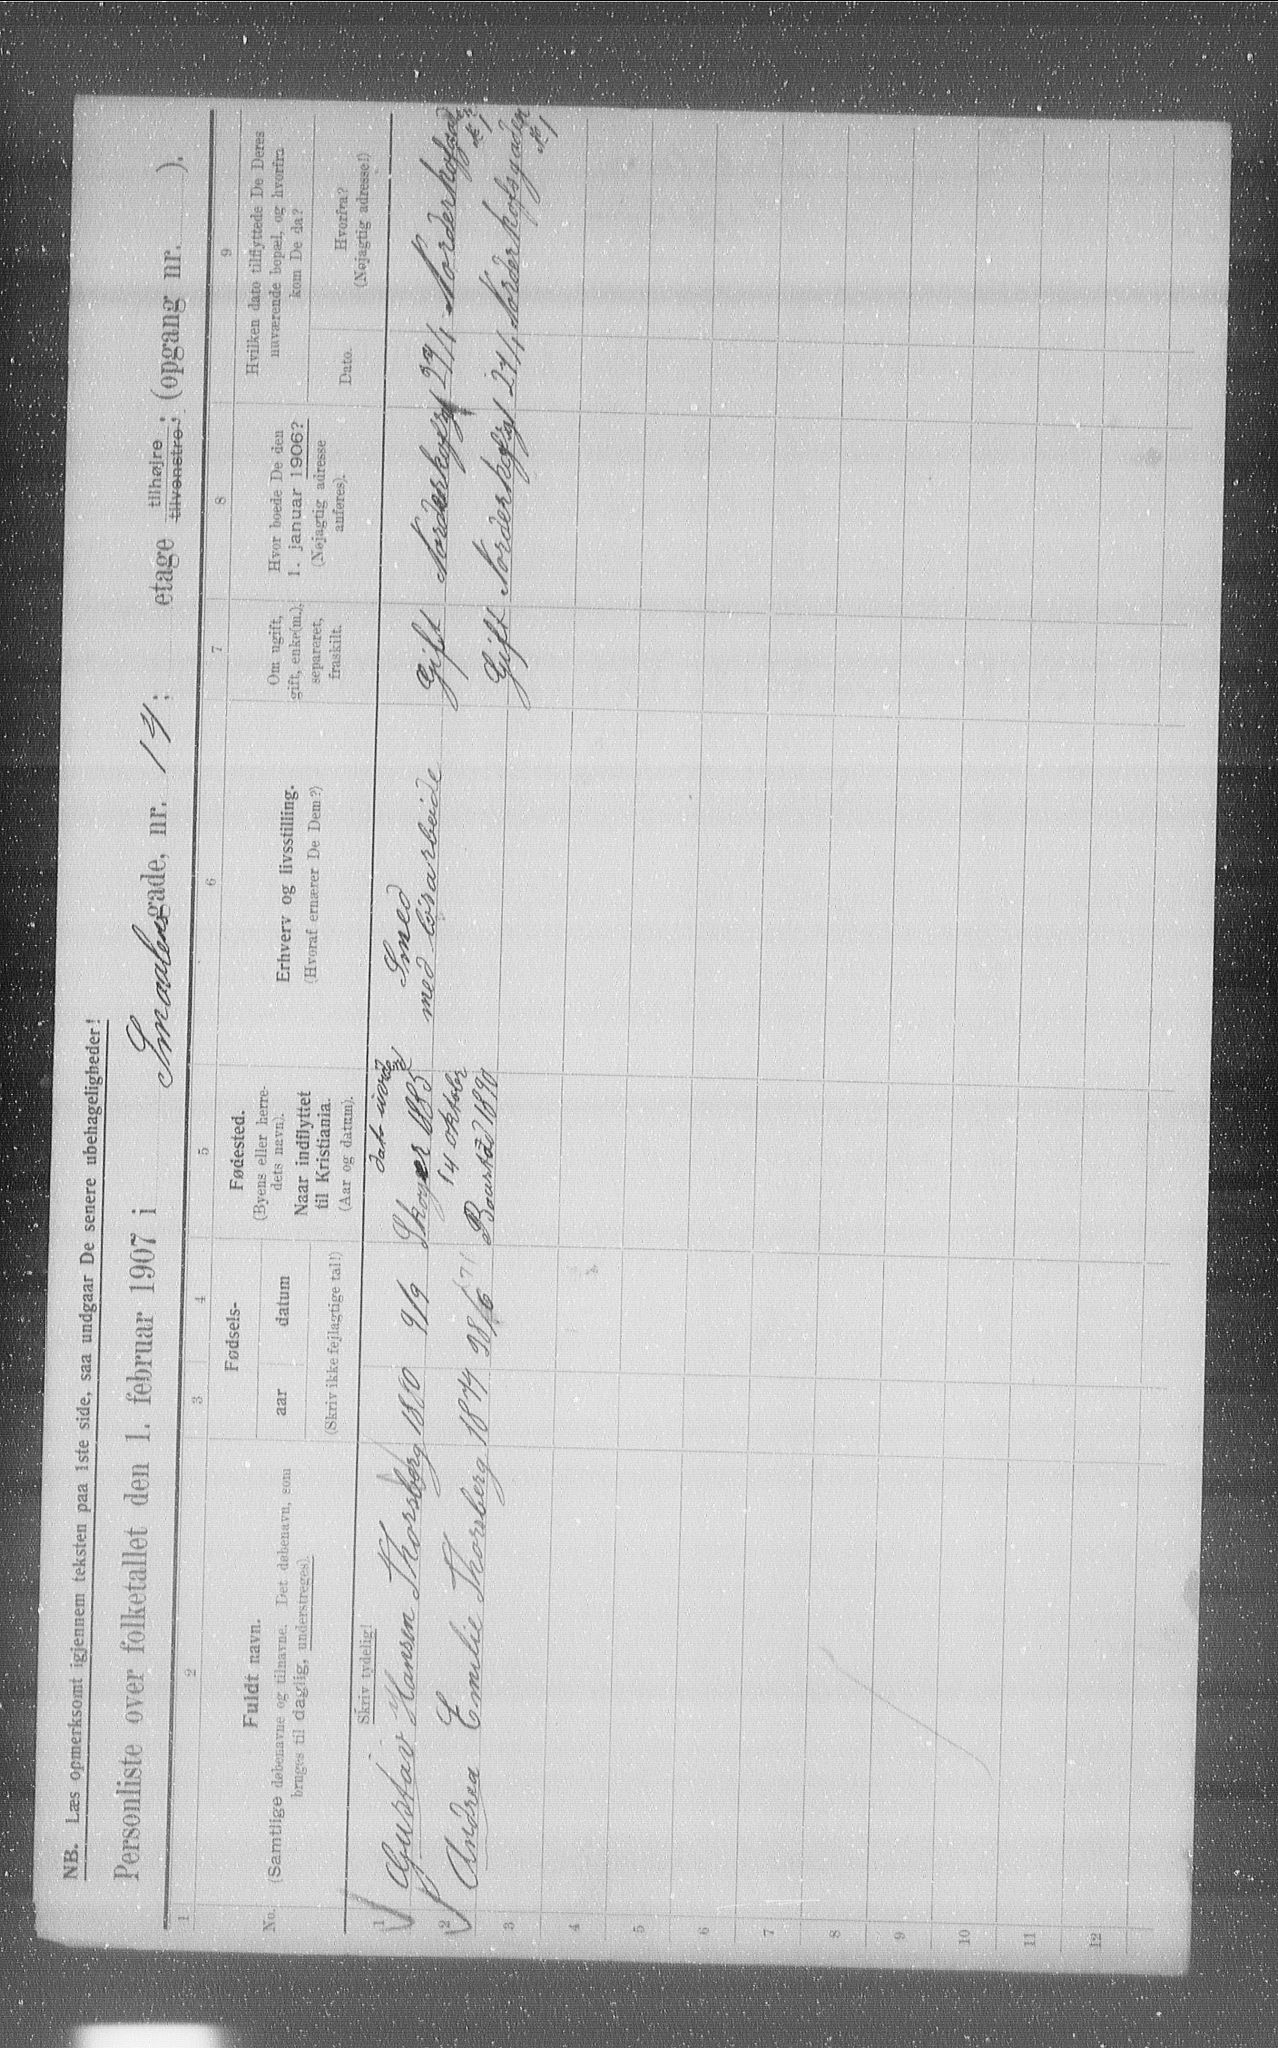 NB. Læs opmerksomt igjennem teksten paa 1ste side, saa undgaar De senere ubehageligheder!
Personliste over folketallet den 1. februar 1907 i Smaalens gade, nr. 14; etage tilhøjre tilvenstre; (opgang nr. ).
1 2 3 4 5 6 7 8 9
No.
Fuldt navn.
(Samtlige døbenavne og tilnavne. Det døbenavn, som
bruges til daglig, understreges).
Skriv tydelig!
Fødsels-
aar datum
(Skriv ikke fejlagtige tal!)
Fødested.
(Byens eller herre-
dets navn).
Naar indflyttet
til Kristiania.
(Aar og datum).
Erhverv og livsstilling.
(Hvoraf ernærer De Dem?)
Om ugift,
gift, enke(m.),
separeret,
fraskilt.
Hvor boede De den
1. januar 1906?
(Nøjagtig adresse
anføres).
Hvilken dato tilflyttede De Deres
nuværende bopæl, og hvorfra
kom De da?
Dato.
Hvorfra?
(Nøjagtig adresse!)
1 Gustav Hansen Thorsberg 1880 9/9 Skoger 1885 Smed med løsarbeide Gift 27/1
2 Andrea Emilie Thorsberg 1874 28/6 14 oktober 1890 Gift 27/1 Norderhofsgaden №1
3
4
5
6
7
8
9
10
11
12